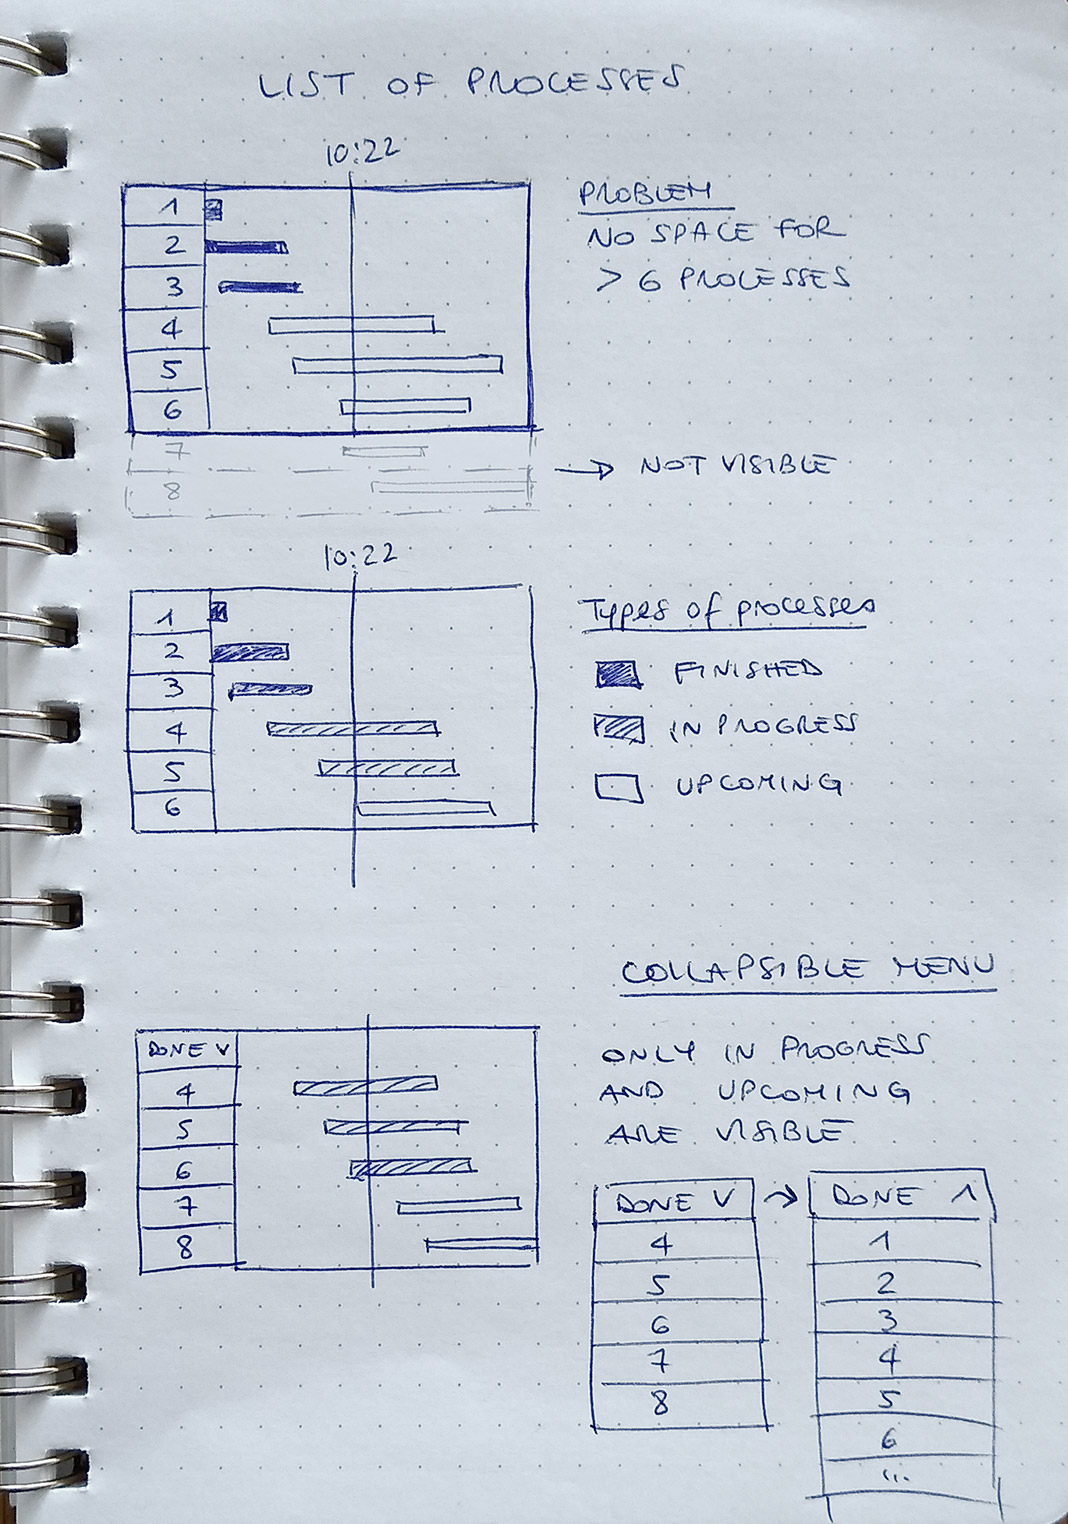 LIST OF PROCESSES
10:22
1
2
3
4
5
6
7
8
PROBLEM
NO SPACE FOR
> 6 PROCESSES
→ NOT VISIBLE
10:22
1
2
3
4
5
6
Types of processes
FINISHED
IN PROGRESS
UPCOMING
COLLAPSIBLE MENU
DONE V
4
5
6
7
8
ONLY IN PROGRESS
AND UPCOMING
ARE VISIBLE
DONE V → DONE ʌ
4 1
5 2
6 3
7 4
8 5
6
...